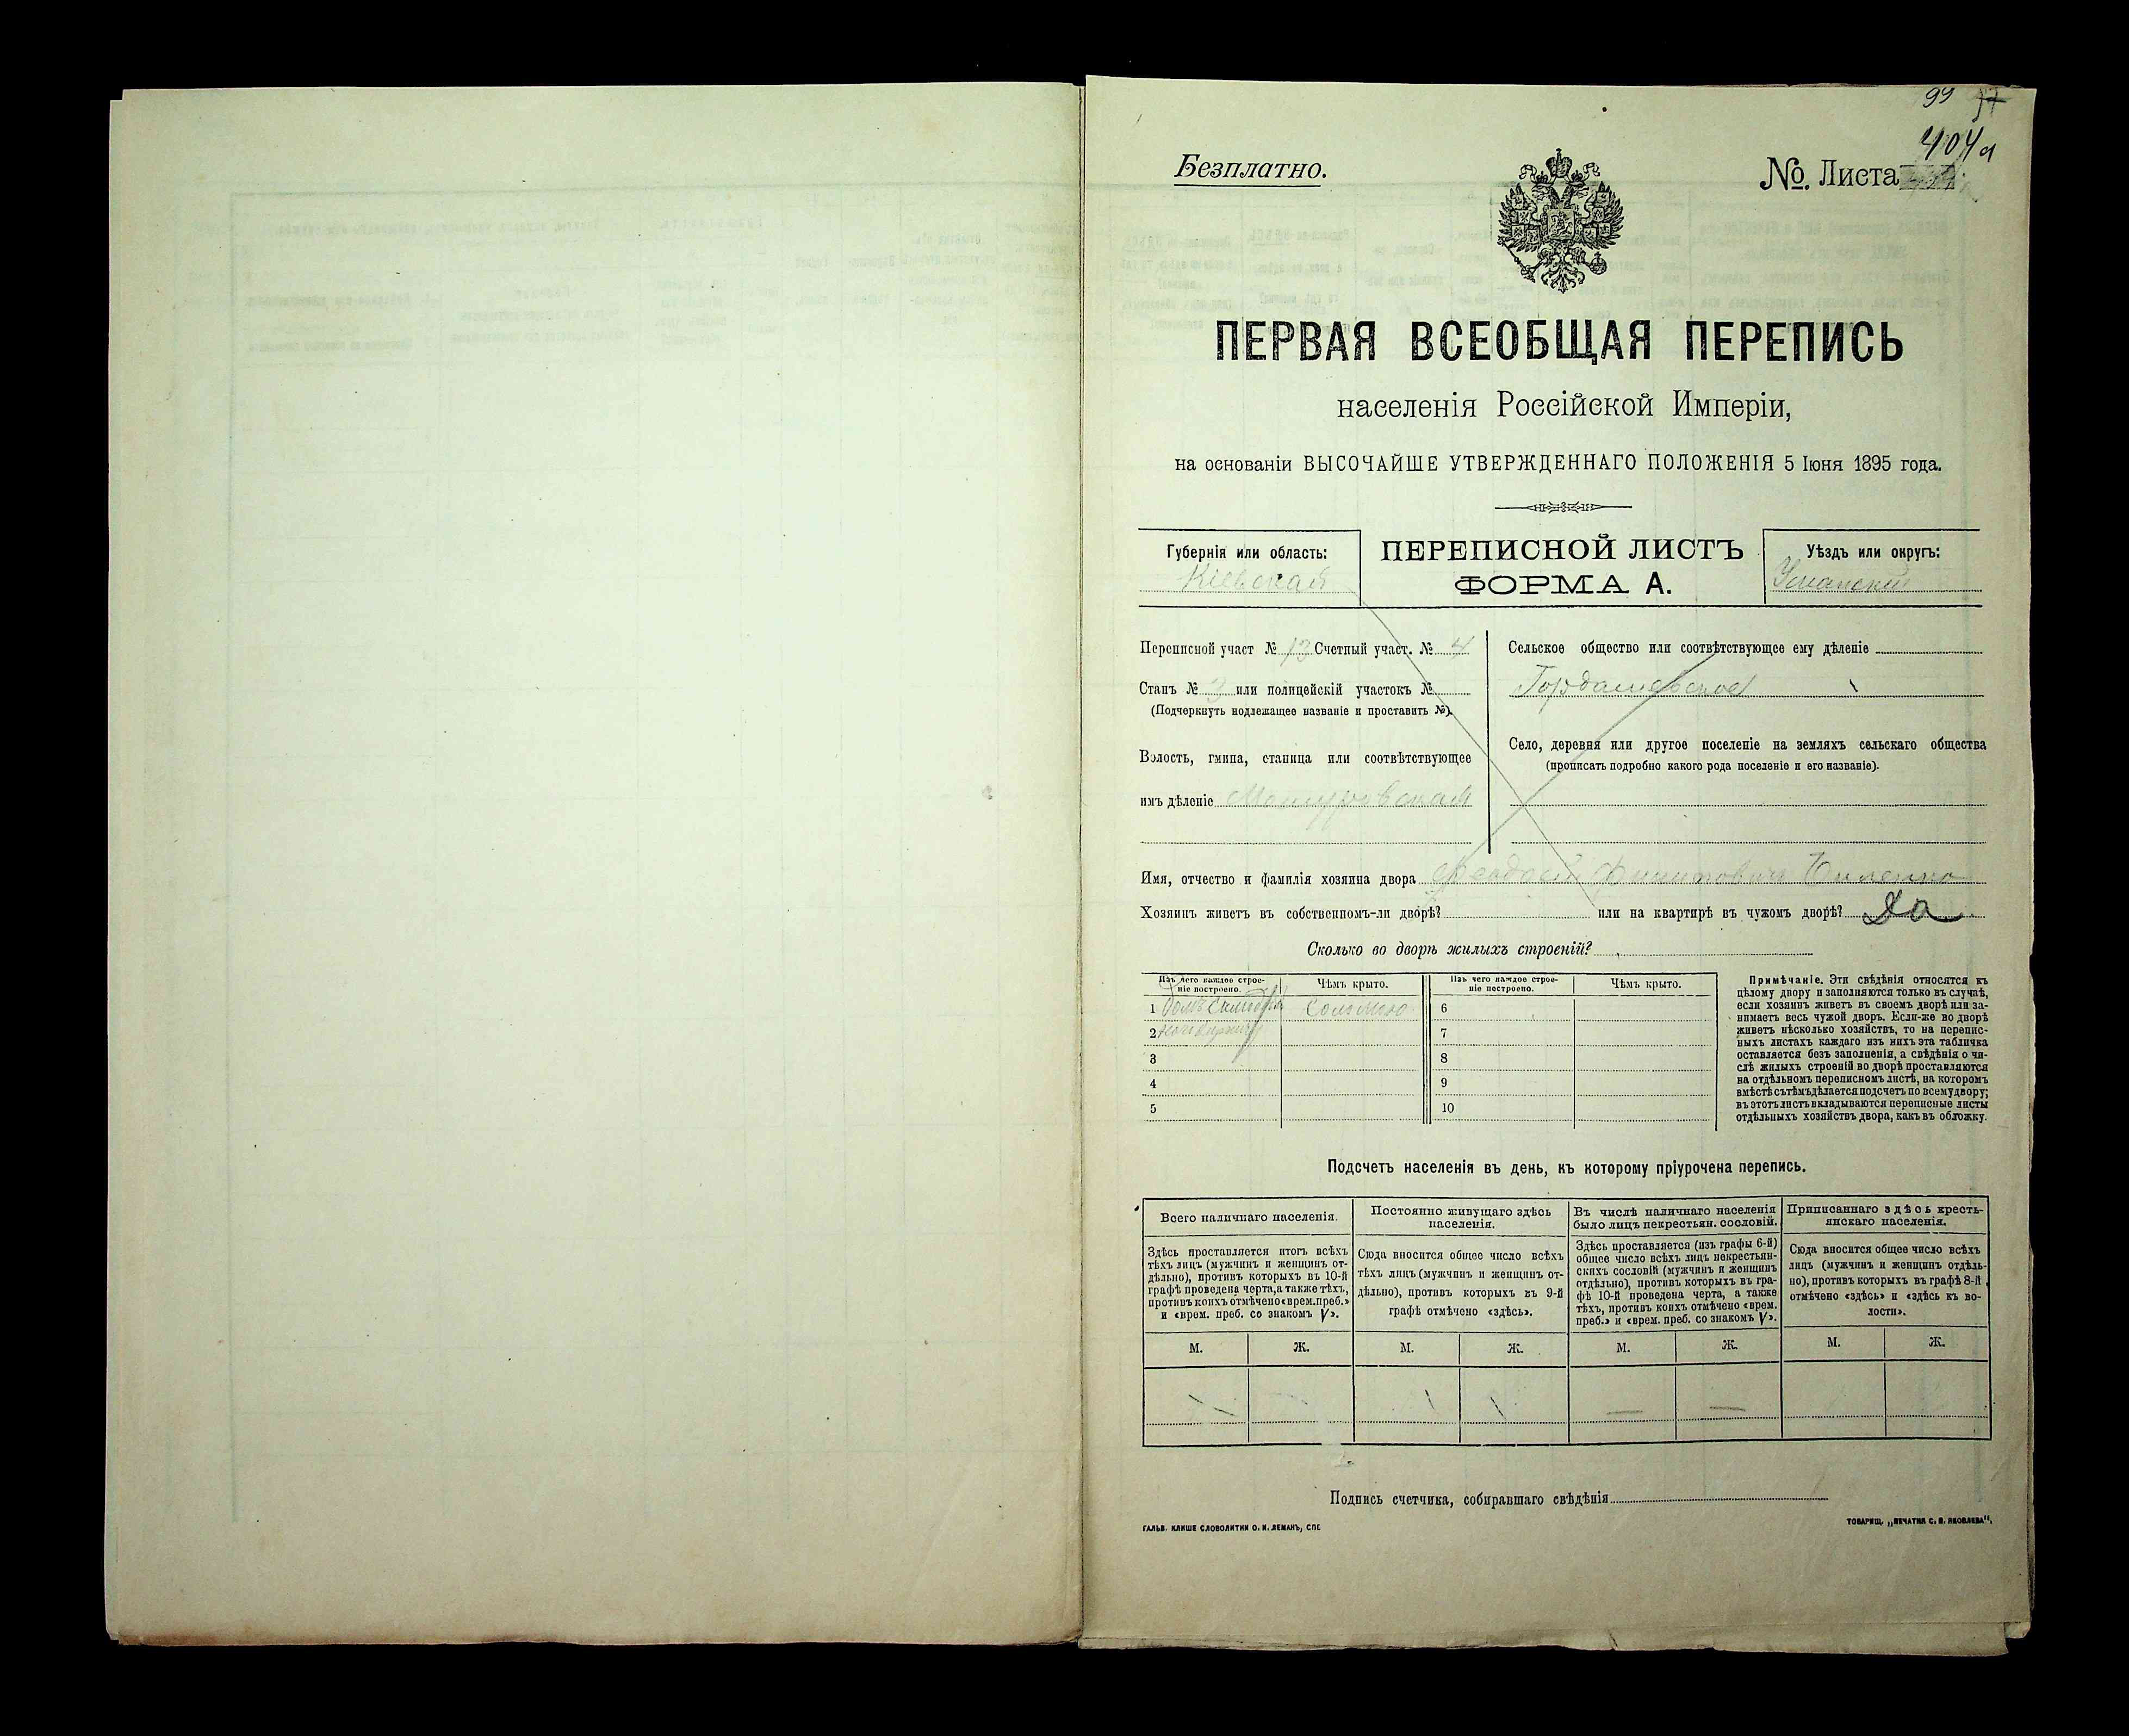 99
404а
Безплатно.
№. Листа
ПЕРВАЯ ВСЕОБЩАЯ ПЕРЕПИСЬ
населенія Россійской Имперіи,
на основаніи ВЫСОЧАЙШЕ УТВЕРЖДЕННАГО ПОЛОЖЕНІЯ 5 Іюня 1895 года.
Губернія или область:
Кіевская
ПЕРЕПИСНОЙ ЛИСТЪ
ФОРМА А.
Уѣздъ или округъ:
Уманскій
Переписной участ № 13 Счетный участ. № 4
Станъ № 3 или полицейскій участокъ №
(Подчеркнуть подлежащее названіе и проставить №).
Волость, гмина, станица или соотвѣтствующее
имъ дѣленіе
Сельское общество или соотвѣтствующее ему дѣленіе
Гордашевское
Село, деревня или другое поселеніе на земляхъ сельскаго общества
(прописать подробно какого рода поселеніе и его названіе).
Имя, отчество и фамилія хозяина двора
Хозяинъ живетъ въ собственномъ-ли дворѣ? или на квартирѣ въ чужомъ дворѣ? Да
Сколько во дворѣ жилыхъ строеній?
Изъ чего каждое строе-
ніе построено.
Чѣмъ крыто.
Изъ чего каждое строе-
ніе построено.
Чѣмъ крыто.
1 Соломою 6
2 7
3 8
4 9
5 10
Примѣчаніе. Эти свѣдѣнія относятся къ
цѣлому двору и заполняются только въ случаѣ,
если хозяинъ живетъ въ своемъ дворѣ или за-
нимаетъ весь чужой дворъ. Если-же во дворѣ
живетъ нѣсколько хозяйствъ, то на перепис-
ныхъ листахъ каждаго изъ нихъ эта табличка
оставляется безъ заполненія, а свѣдѣнія о чи-
слѣ жилыхъ строеній во дворѣ проставляются
на отдѣльномъ переписномъ листѣ, на которомъ
вмѣстѣ съ тѣмъ дѣлается подсчетъ по всему двору;
въ этотъ листъ вкладываются переписные листы
отдѣльныхъ хозяйствъ двора, какъ въ обложку.
Подсчетъ населенія въ день, къ которому пріурочена перепись.
Всего наличнаго населенія.
Здѣсь проставляется итогъ всѣхъ
тѣхъ лицъ (мужчинъ и женщинъ от-
дѣльно), противъ которыхъ въ 10-й
графѣ проведена черта, а также тѣхъ,
противъ коихъ отмѣчено «врем. преб.»
и «врем. преб. со знакомъ V».
Постоянно живущаго здѣсь
населенія.
Сюда вносится общее число всѣхъ
тѣхъ лицъ (мужчинъ и женщинъ от-
дѣльно), противъ которыхъ въ 9-й
графѣ отмѣчено «здѣсь».
Въ числѣ наличнаго населенія
было лицъ некрестьян. сословій.
Здѣсь проставляется (изъ графы 6-й)
общее число всѣхъ лицъ некрестьян-
скихъ сословій (мужчинъ и женщинъ
отдѣльно), противъ которыхъ въ гра-
фѣ 10-й проведена черта, а также
тѣхъ, противъ коихъ отмѣчено «врем.
преб.» и «врем. преб. со знакомъ V».
Приписаннаго здѣсь кресть-
янскаго населенія.
Сюда вносится общее число всѣхъ
лицъ (мужчинъ и женщинъ отдѣль-
но), противъ которыхъ въ графѣ 8-й
отмѣчено «здѣсь» и «здѣсь къ во-
лости».
М. Ж. М. Ж. М. Ж. М. Ж.
Подпись счетчика, собиравшаго свѣдѣнія
ГАЛЬВ. КЛИШЕ СЛОВОЛИТНИ О. И. ЛЕМАНЪ, СПБ
ТОВАРИЩ. „ПЕЧАТНЯ С. П. ЯКОВЛЕВА“.